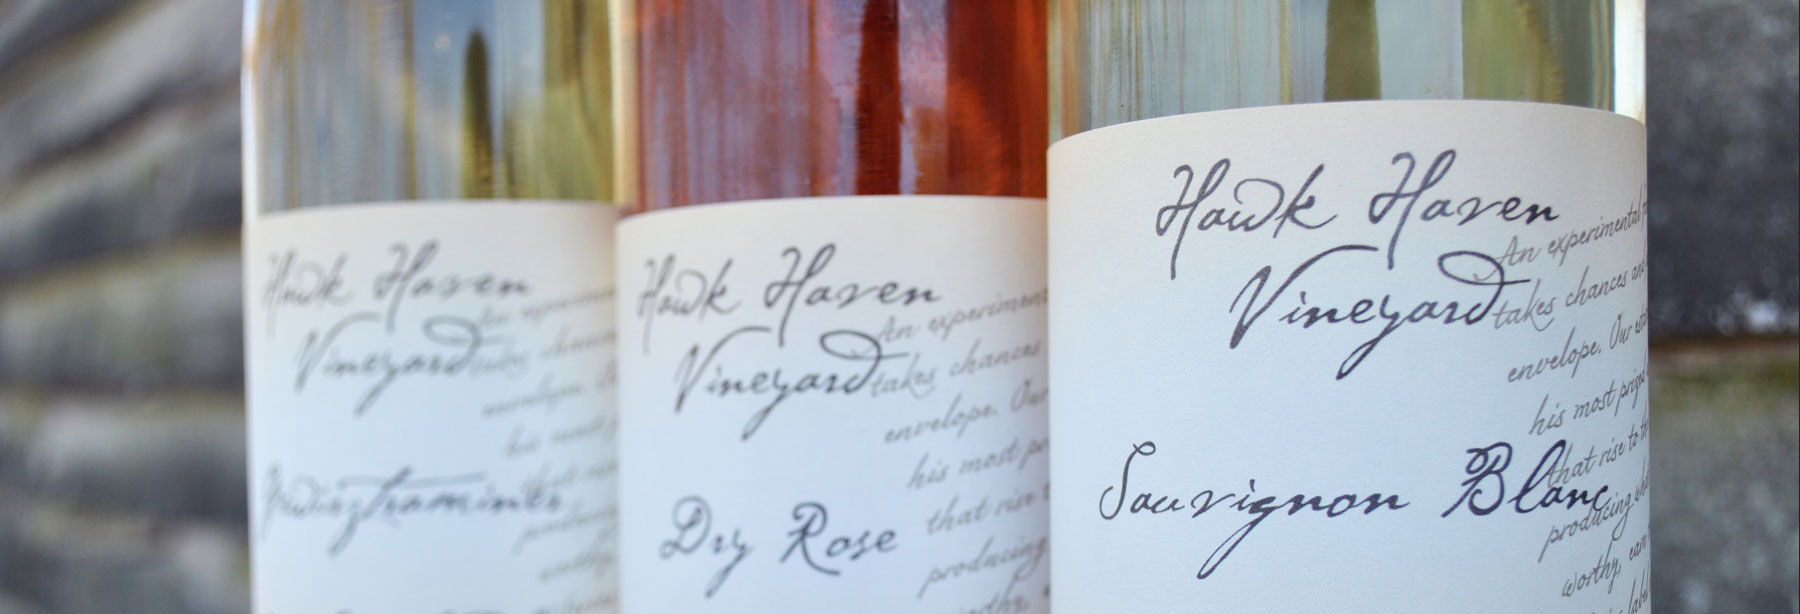 Hawk Haven
Vineyard
Gewürztraminer
Hawk Haven
Vineyard
An experiment
takes chances
envelope. Our
his most
that rise t
producing
Dry Rose
Hawk Haven
Vineyard
An experimental
takes chances and
envelope. Our
his most prized
that rise to
producing
worthy,
label
Sauvignon Blanc